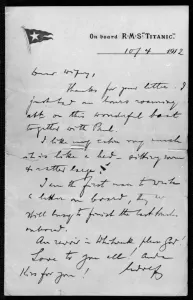 On board R.M.S. "TITANIC".
10/4 1912
Dear Wifey,
Thanks for your letter. I
just had an hours roaming
abt on this wonderful boat
together with Paul.
I like my cabin very much
it is like a bed sitting room
& rather large
I am the first man to write
a letter on board, they are
still busy to finish the last
onboard.
Au revoir in
Love to you all! And a
Kiss for you!
Adolf